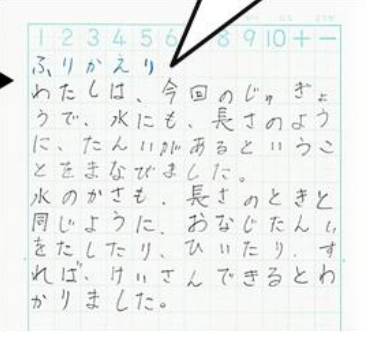 1 2 3 4 5 6 8 9 10 + −
ふりかえり
わたしは、今回のじゅぎょ
うで、水にも、長さのよう
に、たんいがあるというこ
とをまなびました。
水のかさも、長さのときと
同じように、おなじたんい
をたしたり、ひいたり、す
れば、けいさんできるとわ
かりました。